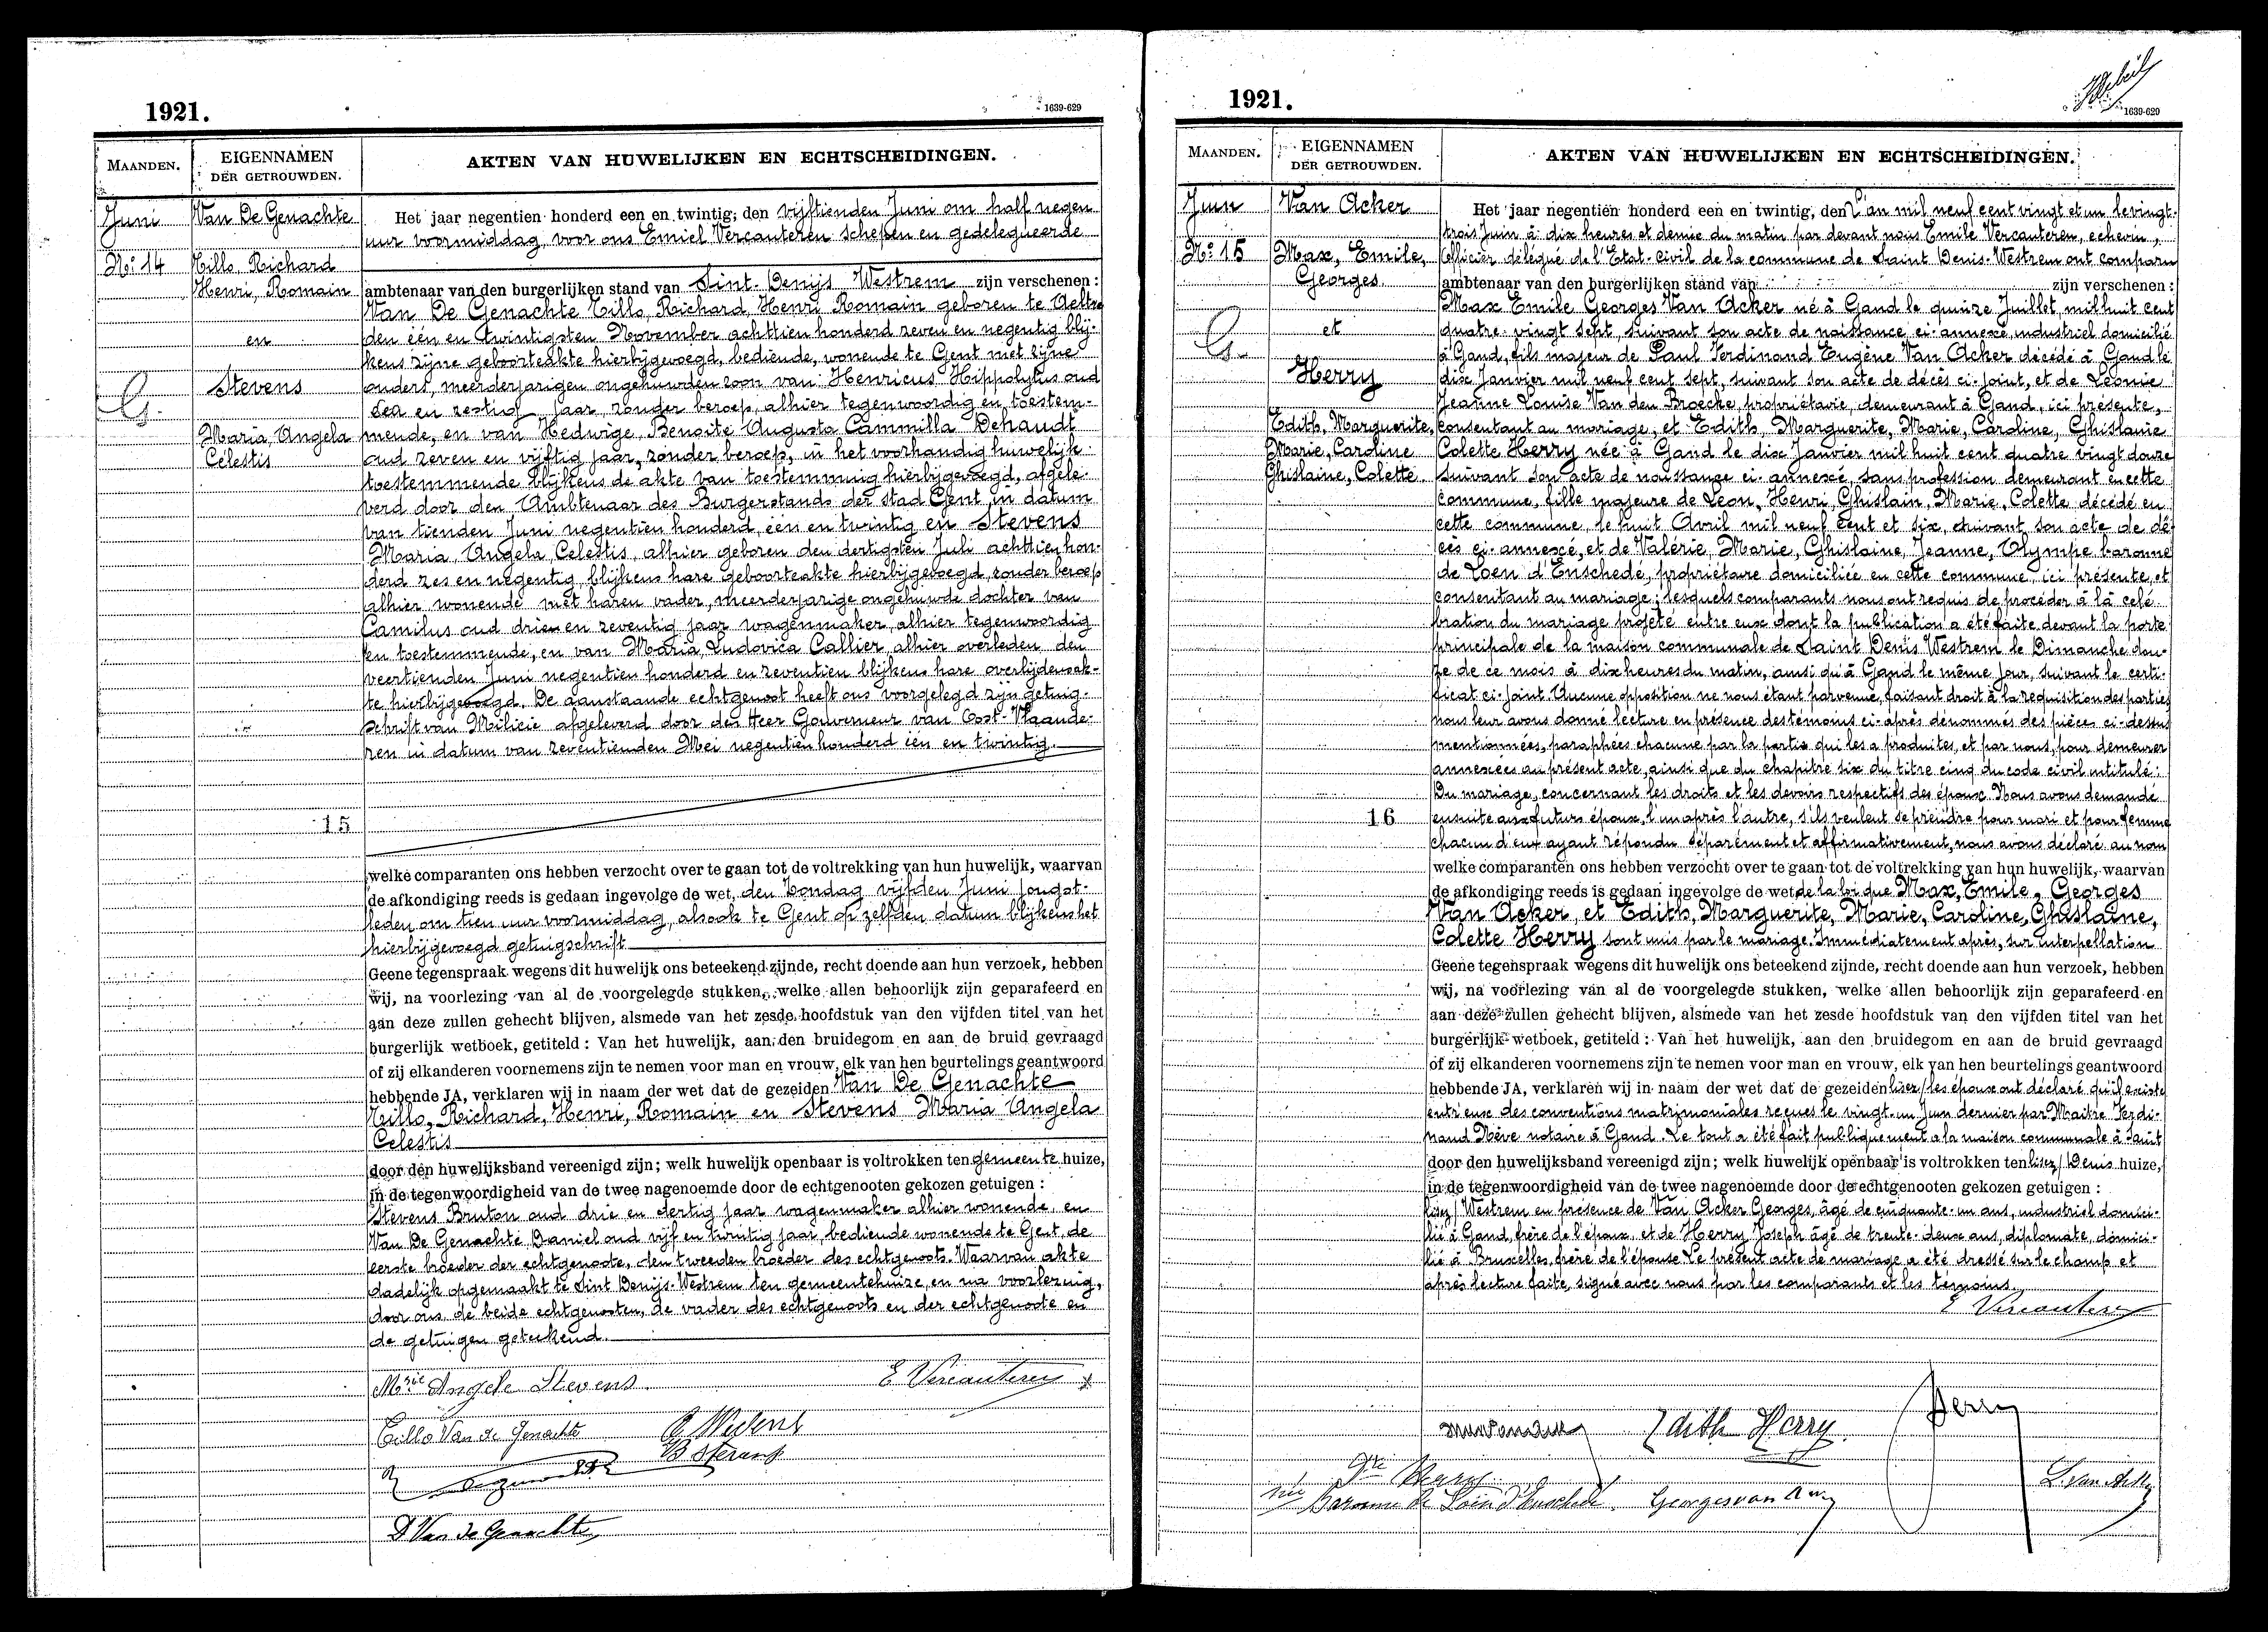 1921.
1639-629
MAANDEN.
EIGENNAMEN
DER GETROUWDEN.
AKTEN VAN HUWELIJKEN EN ECHTSCHEIDINGEN.
Juni
Van De Genachte
No 14
Tillo, Richard
Henri, Romain
en
Stevens
G.
Maria, Angela
Celestis
15
Het jaar negentien honderd een en twintig, den vijftienden Juni om half negen
uur voormiddag, voor ons Emiel Vercauteren schepen en gedelegueerde
ambtenaar van den burgerlijken stand van Sint-Denijs Westrem zijn verschenen :
Van De Genachte Tillo, Richard, Henri, Romain geboren te Aeltre
den één en twintigsten November achttien honderd zeven en negentig blij-
kens zijne geboorteakte hierbijgevoegd, bediende, wonende te Gent met zijne
ouders, meerderjarigen ongehuwden zoon van Henricus Hippolytus oud
een en zestig jaar, zonder beroep, alhier tegenwoordig en toestem-
mende, en van Hedwige, Benoite Augusta Cammilla Dehaudt
oud zeven en vijftig jaar, zonder beroep, in het voorhandig huwelijk
toestemmende blijkens de akte van toestemming hierbijgevoegd, afgele-
verd door den Ambtenaar des Burgerstands der stad Gent, in datum
van tienden Juni negentien honderd, één en twintig en Stevens
Maria, Angela, Celestis, alhier geboren den dertigsten Juli achttien hon-
derd zes en negentig, blijkens hare geboorteakte hierbijgevoegd, zonder beroep
alhier wonende met haren vader, meerderjarige ongehuwde dochter van
Camilus oud drie en zeventig jaar wagenmaker, alhier tegenwoordig
en toestemmende, en van Maria, Ludovica Callier, alhier overleden den
veertienden Juni negentien honderd en zeventien blijkens hare overlijdensak-
te hierbijgevoegd. De aanstaande echtgenoot heeft ons voorgelegd zijn getuig-
schrift van Milicie afgeleverd door den Heer Gouverneur van Oost-Vlaande-
ren in datum van zeventienden Mei negentien honderd één en twintig.
welke comparanten ons hebben verzocht over te gaan tot de voltrekking van hun huwelijk, waarvan
de afkondiging reeds is gedaan ingevolge de wet, den Zondag vijfden Juni jongst-
leden om tien uur voormiddag, alsook te Gent op zelfden datum blijkens het
hierbijgevoegd getuigschrift
Geene tegenspraak wegens dit huwelijk ons beteekend zijnde, recht doende aan hun verzoek, hebben
wij, na voorlezing van al de voorgelegde stukken, welke allen behoorlijk zijn geparafeerd en
aan deze zullen gehecht blijven, alsmede van het zesde hoofdstuk van den vijfden titel van het
burgerlijk wetboek, getiteld : Van het huwelijk, aan den bruidegom en aan de bruid gevraagd
of zij elkanderen voornemens zijn te nemen voor man en vrouw, elk van hen beurtelings geantwoord
hebbende JA, verklaren wij in naam der wet dat de gezeiden Van De Genachte
Tillo, Richard, Henri, Romain en Stevens Maria Angela
Celestis
door den huwelijksband vereenigd zijn; welk huwelijk openbaar is voltrokken ten gemeente huize,
in de tegenwoordigheid van de twee nagenoemde door de echtgenooten gekozen getuigen :
Stevens Bruton oud drie en dertig jaar wagenmaker alhier wonende, en
Van De Genachte Daniel oud vijf en twintig jaar, bediende wonende te Gent, de
eerste broeder der echtgenoote, den tweeden broeder des echtgenoots. Waarvan akte
dadelijk opgemaakt te Sint Denijs-Westrem ten gemeentehuize, en na voorlezing,
door ons, de beide echtgenoten, de vader des echtgenoots en der echtgenoote en
de getuigen geteekend.
Mrie Angele Stevens
E Vercauteren
Tillo Van de Genachte
B Stevens
D Van de Genachte
1921.
1639-629
MAANDEN.
EIGENNAMEN
DER GETROUWDEN.
AKTEN VAN HUWELIJKEN EN ECHTSCHEIDINGEN.
Juin
Van Acker
No 15
Max, Emile,
Georges
et
G.
Herry
Edith, Marguerite,
Marie, Caroline
Ghislaine, Colette.
16
Het jaar negentien honderd een en twintig, den L'an mil neuf cent vingt et un le vingt-
trois Juin à dix heures et demie du matin par devant nous Emile Vercauteren, echevin,
Officier délégué de l'Etat-civil de la commune de Saint Denis-Westrem ont comparu
ambtenaar van den burgerlijken stand van zijn verschenen :
Max Emile Georges Van Acker né à Gand le quinze Juillet, mil huit cent
quatre-vingt sept, suivant son acte de naissance, ci-annexé, industriel domicilié
à Gand, fils majeur de Paul Ferdinand Eugène Van Acker décédé à Gand le
dix Janvier mil neuf cent sept, suivant son acte de décès ci-joint, et de Léonie
Jeanne Louise Van den Broecke, propriétaire, demeurant à Gand, ici présente,
consentant au mariage, et Edith, Marguerite, Marie, Caroline, Ghislaine
Colette Herry née à Gand le dix Janvier mil huit cent quatre vingt douze
suivant son acte de naissance ci-annexé, sans profession demeurant en cette
commune, fille majeure de Leon, Henri, Ghislain, Marie, Colette décédé en
cette commune, le huit Avril mil neuf cent et six, suivant son acte de dé-
cès ci-annexé, et de Valérie, Marie, Ghislaine, Jeanne, Olympe baronne
de Loen d'Enschedé, propriétaire domiciliée en cette commune, ici présente, et
consentant au mariage; lesquels comparants nous ont requis de procéder à la célé-
bration du mariage projeté entre eux dont la publication a été faite devant la porte
principale de la maison communale de Saint Denis Westrem le Dimanche dou-
ze de ce mois à dix heures du matin, ainsi qu'à Gand le même jour, suivant le certi-
ficat ci-joint. Aucune opposition ne nous étant parvenue, faisant droit à la requisition des parties
nous leur avons donné lecture en présence des témoins ci-après dénommés des pièces ci-dessus
mentionnées, paraphées chacune par la partie qui les a produites, et par nous, pour demeurer
annexées au présent acte, ainsi que du chapitre six du titre cinq du code civil intitulé:
Du mariage, concernant les droits et les devoirs respectifs des époux. Nous avons demandé
ensuite aux futurs époux, l'un après l'autre, s'ils veulent se prendre pour mari et pour femme
chacun d'eux ayant répondu séparément et affirmativement, nous avons déclaré au nom
welke comparanten ons hebben verzocht over te gaan tot de voltrekking van hun huwelijk, waarvan
de afkondiging reeds is gedaan ingevolge de wet, de la loi que Max, Emile, Georges
Van Acker, et Edith, Marguerite, Marie, Caroline, Ghislaine,
Colette Herry sont unis par le mariage. Immédiatement après, sur interpellation
Geene tegenspraak wegens dit huwelijk ons beteekend zijnde, recht doende aan hun verzoek, hebben
wij, na voorlezing van al de voorgelegde stukken, welke allen behoorlijk zijn geparafeerd en
aan deze zullen gehecht blijven, alsmede van het zesde hoofdstuk van den vijfden titel van het
burgerlijk wetboek, getiteld : Van het huwelijk, aan den bruidegom en aan de bruid gevraagd
of zij elkanderen voornemens zijn te nemen voor man en vrouw, elk van hen beurtelings geantwoord
hebbende JA, verklaren wij in naam der wet dat de gezeiden lisez / les époux ont déclaré qu'il existe
entr'eux des conventions matrimoniales reçues le vingt-un Juin dernier par Maître Ferdi-
nand Nève notaire à Gand. Le tout a été fait publiquement a la maison communale à Saint
door den huwelijksband vereenigd zijn; welk huwelijk openbaar is voltrokken ten lisez / Denis huize,
in de tegenwoordigheid van de twee nagenoemde door de echtgenooten gekozen getuigen :
lisez / Westrem en présence de Van Acker Georges, âgé de cinquante-un ans, industriel domici-
lié à Gand, frère de l'époux, et de Herry Joseph âgé de trente-deux ans, diplomate, domici-
lié à Bruxelles, frère de l'épouse. Le présent acte de mariage a été dressé sur le champ et
après lecture faite, signé avec nous par les comparants et les temoins.
E Vercauteren
Edith Herry
Herry
Gte Herry
née Baronne de Loën d'Enschedé.
Georges van A
L. van Acker